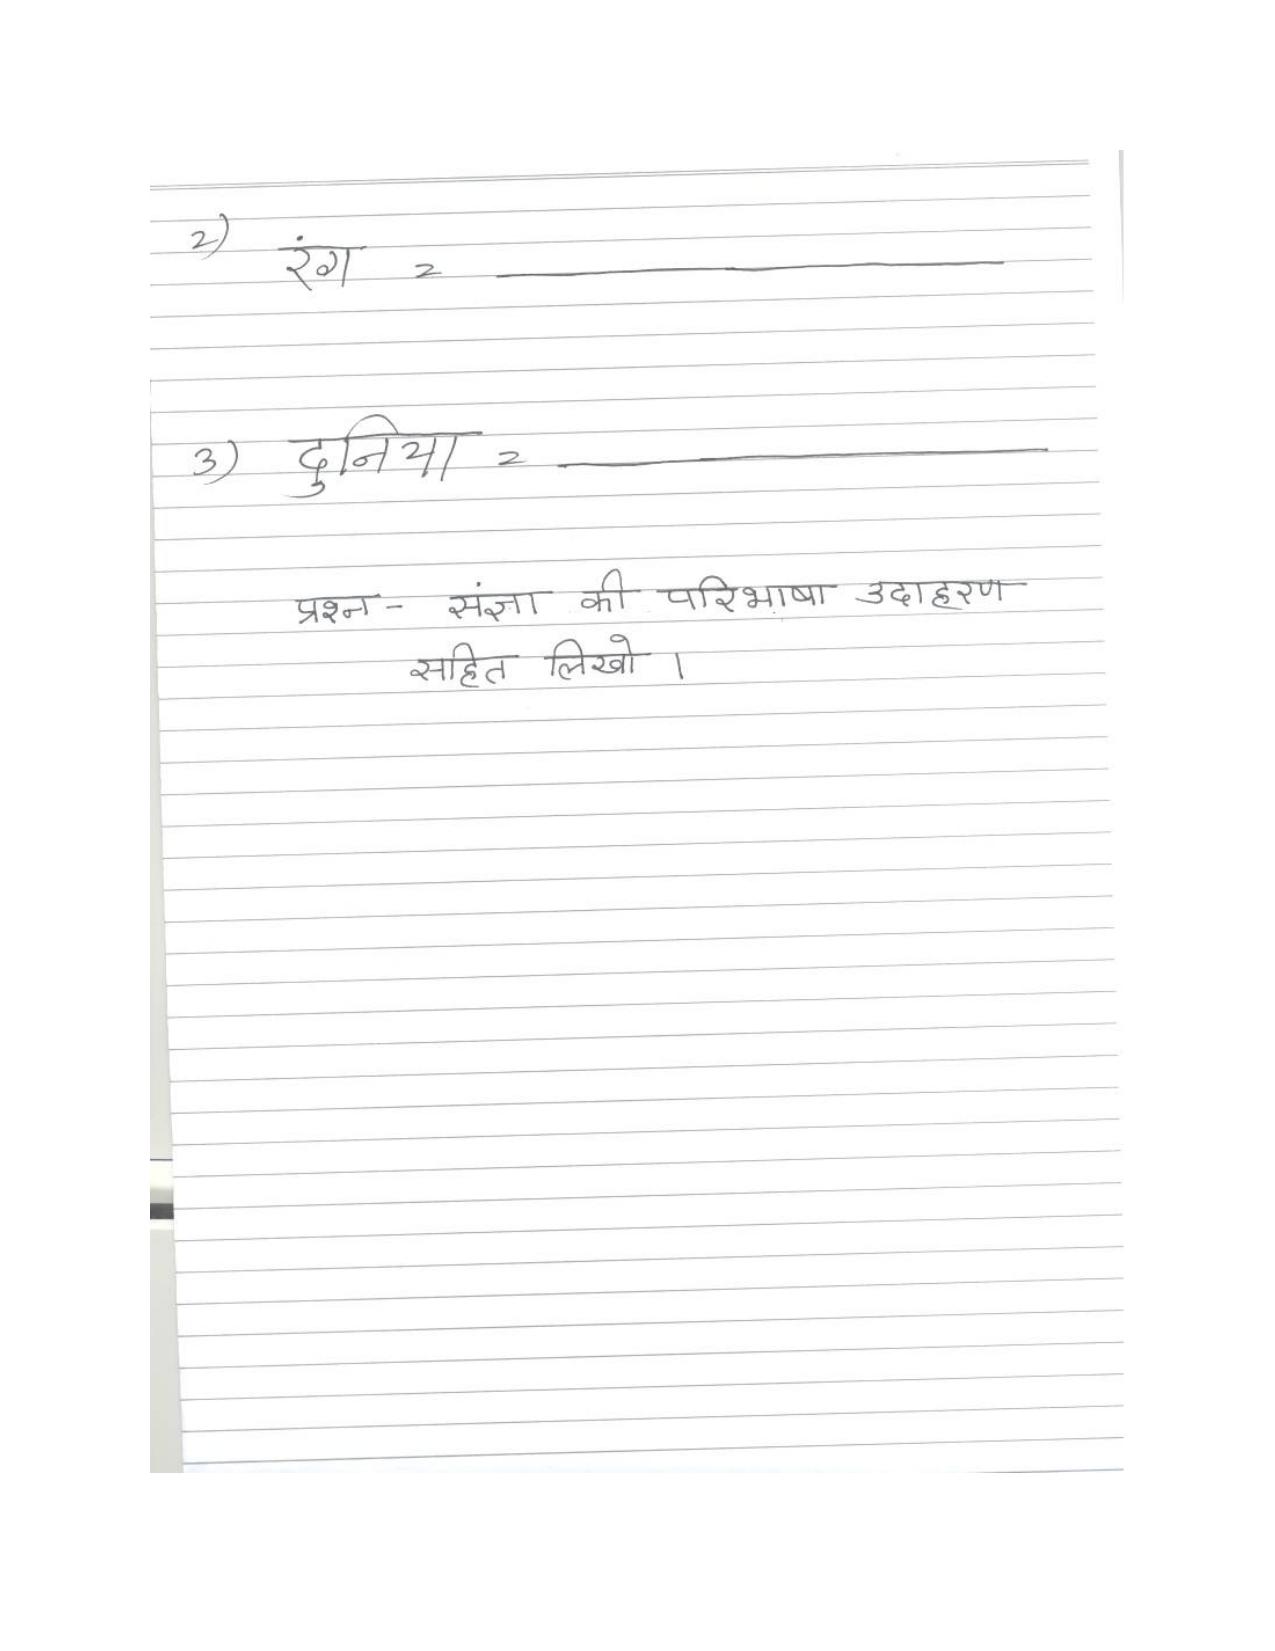 2) रंग = ―――
3) दुनिया = ―――
प्रश्न - संज्ञा की परिभाषा उदाहरण
सहित लिखो ।